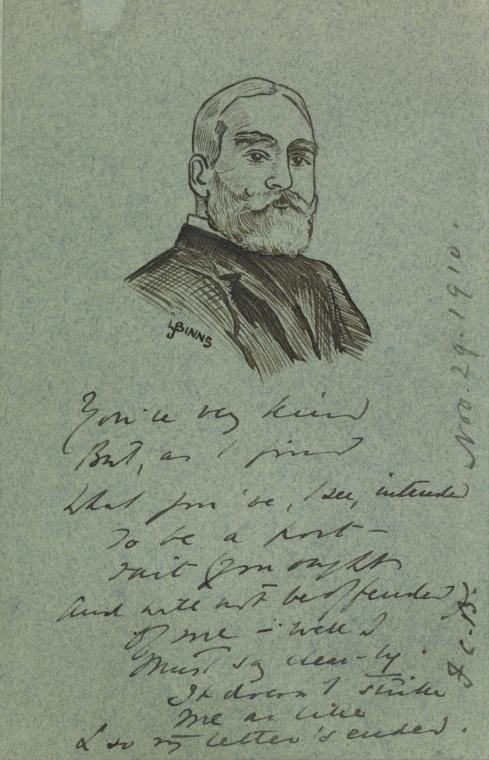 LJBINNS
You're very kind
But, as I find
What you've, I see, intended
To be a port-
rait (you ought
And will not be offended)
Of me – well I
Must say clear-ly
It doesn't strike
me as like
& so my letter's ended.
F. C. B.
Nov. 29. 1910.